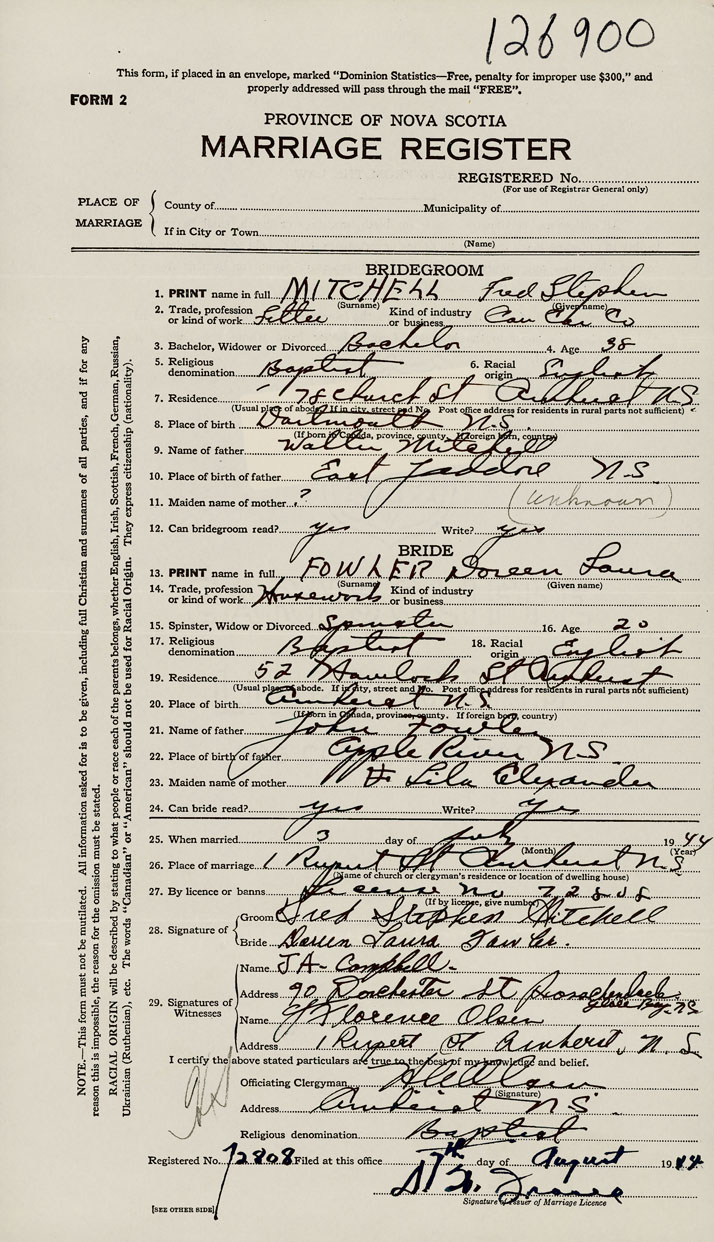 126900
This form, if placed in an envelope, marked "Dominion Statistics—Free, penalty for improper use $300," and
properly addressed will pass through the mail "FREE".
FORM 2
PROVINCE OF NOVA SCOTIA
MARRIAGE REGISTER
REGISTERED No.
(For use of Registrar General only)
PLACE OF MARRIAGE
County of Municipality of
If in City or Town
(Name)
BRIDEGROOM
1. PRINT name in full MITCHELL Fred Stephen
(Surname) (Given name)
2. Trade, profession or kind of work Fitter Kind of industry or business Can Car Co
3. Bachelor, Widower or Divorced Bachelor 4. Age 38
5. Religious denomination Baptist 6. Racial origin English
7. Residence 78 Church St Amherst N.S.
(Usual place of abode. If in city, street and No. Post office address for residents in rural parts not sufficient)
8. Place of birth Dartmouth N.S.
(If born in Canada, province, county. If foreign born, country)
9. Name of father Walter Mitchell
10. Place of birth of father East Jaddore N.S.
11. Maiden name of mother ? (unknown)
12. Can bridegroom read? yes Write? yes
BRIDE
13. PRINT name in full FOWLER Doreen Laura
(Surname) (Given name)
14. Trade, profession or kind of work Housework Kind of industry or business
15. Spinster, Widow or Divorced Spinster 16. Age 20
17. Religious denomination Baptist 18. Racial origin English
19. Residence 52 Havelock St Amherst
(Usual place of abode. If in city, street and No. Post office address for residents in rural parts not sufficient)
20. Place of birth Amherst N.S.
(If born in Canada, province, county. If foreign born, country)
21. Name of father John Fowler
22. Place of birth of father Apple River N.S.
23. Maiden name of mother Lila Elexander
24. Can bride read? yes Write? yes
25. When married 3 day of July 1944
(Month) (Year)
26. Place of marriage 1 Rupert St Amherst N.S.
(Name of church or clergyman's residence or location of dwelling house)
27. By licence or banns License No 72808
(If by license, give number)
28. Signature of
Groom Fred Stephen Mitchell
Bride Doreen Laura Fowler.
29. Signatures of Witnesses
Name J A Campbell
Address 90 Dorchester St Glace Bay N.S.
Name Florence Olsen
Address 1 Rupert St Amherst, N.S.
I certify the above stated particulars are true to the best of my knowledge and belief.
Officiating Clergyman
(Signature)
Address Amherst N.S.
Religious denomination Baptist
Registered No. 72808 Filed at this office 7th day of August 1944
Signature of Issuer of Marriage Licence
[SEE OTHER SIDE]
NOTE.—This form must not be mutilated. All information asked for is to be given, including full Christian and surnames of all parties, and if for any
reason this is impossible, the reason for the omission must be stated.
RACIAL ORIGIN will be described by stating to what people or race each of the parents belongs, whether English, Irish, Scottish, French, German, Russian,
Ukrainian (Ruthenian), etc. The words "Canadian" or "American" should not be used for Racial Origin. They express citizenship (nationality).